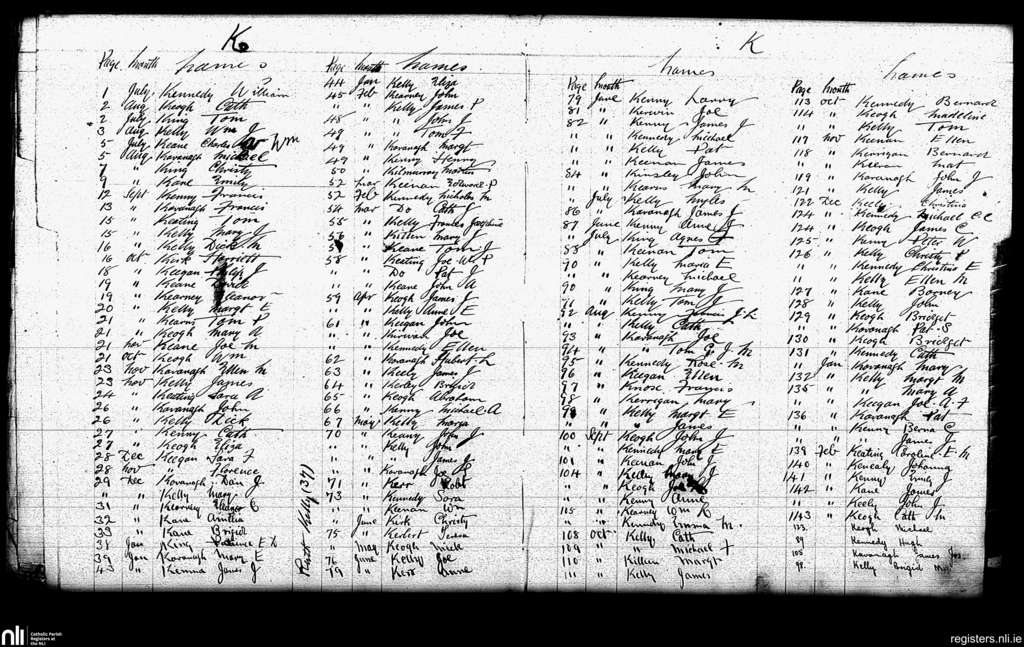 K
Page month names
1 July Kennedy William
2 Aug Keogh Cath
2 July King Tom
3 Aug Kelly Wm J
5 July Keane Charles Wm
5 Aug Kavanagh Michael
7 " King Christy
9 " Kane Emily
12 Sept Kenny Francis
13 " Kavanagh Francis
15 " Keating Tom
15 " Kelly Mary J
16 " Kelly Dick M
16 Oct Kirk Harriott
18 " Keegan Philip J
19 " Keane David
19 " Kearney Eleanor
20 " Kelly Margt
21 " Kearns Tom P
21 " Keogh Mary A
21 Nov Keane Joe M
21 Oct Keogh Wm
23 Nov Kavanagh Ellen M
23 Nov Kelly James
24 " Keating Sara A
26 " Kavanagh John
26 " Kelly Dick
27 " Kenny Cath
27 " Keogh Eliza
28 Dec Keegan Sara F
28 Nov " Florence
29 Dec Kavanagh Dan J
" " Kelly Mary
31 " Kearney
32 " Kane
33 " Kane Brigid
Jan Kirk
39 Jan Kavanagh Mary E
43 " Kenna James J
Page month names
44 Jan Kelly Eliza
45 Feb Kearney John
" " Kelly James P
48 " " John J
49 " " Tom F
49 " Kavanagh Margt
49 " Kenny Henry
50 " Kilmurray
52 Mar Keenan Edward P
52 Feb Kennedy Nicholas M
54 Mar Do Cath J
55 " Kelly Frances Josephine
56 " Kitson Mary J
" Keane Tom J
58 " Keating Joe W P
" " Do Pat J
" " Keane John A
59 Apr Keogh James J
" " Kelly Anne E
61 " Keegan John
" " Kirwan Joe
" " Kennedy Ellen
62 " Kavanagh Hubert L
63 " Kelly James J
64 " Brandt
65 " Keogh Abraham
66 " Kenny Michael A
67 May Kelly
70 " Keany John J
" " Kelly John J
" " " James J
" " Kavanagh Joe P
71 " Kerr Robt
73 " Kennedy Sara
" " Keenan Wm
" June Kirk Christy
75 " Teresa
" May Keogh Mick
76 June Kelly Joe
79 " Kerr Anne
K
names
Page month
79 June Kenny Larry
81 " Kerwin Joe
82 " Kenny James J
" " Kennedy Michael
" " Kelly Pat
" " Keenan James
84 " Kinsley John
" " Kearns Mary M
" July Kelly Myles
86 " Kavanagh James J
87 June Kenny Anne J
" July King Agnes F
88 " Keenan Tom
90 " Kelly Maria E
" " Kearney Michael
90 " King Mary J
91 " Kelly Tom J
92 Aug Kenny
" " Kelly Cath
93 " Kavanagh Joe
94 " " Tom G J M
95 " Kennedy Rose M
96 " Keegan Ellen
97 " Knox Francis
98 " Kerrigan Mary
98 " Kelly Margt E
" " " James
100 Sept Keogh John J
" " Kennedy Mary E
101 " Keenan John J
104 " Kelly Mary J
" " Keogh
" " Kenny Anne
105 " Kearney Wm
" " Kennedy Emma M.
108 Oct Kelly Cath
109 " " Michael F
110 " Killeen Margt
111 " Kelly James
Page month names
113 Oct Kennedy Bernard
114 " Keogh Madeline
" " Kelly Tom
117 Nov Keenan Ellen
118 " Kerrigan Bernard
" " Keenan Mat
119 " Kavanagh John J
121 " Kelly James
122 Dec Kelly Christina
124 " Kennedy Michael
124 " Keogh James C
125 " Kenny Peter W
126 " Kelly Christy
" " Kennedy Christina E
" " Kelly Ellen M
127 " Kane Barney
128 " Kelly John
129 " Keogh Bridget
" " Kavanagh Pat S
130 " Keogh Bridget
131 " Kennedy Cath
" Jan Kavanagh Mary
132 " Kelly Margt M
135 " " Mary A
" " Keegan Joe A F
136 " Kavanagh Pat
" " Kenny
" " " James J
139 Feb Keating Caroline E M
140 " Kenealy Johanna
141 " Kenny
142 " Kane James
" " Kelly John J
143 " Keogh Cath M
Keogh Michael
89 Kennedy Hugh
105 Kavanagh James
98 Kelly Brigid
Kelly (37)
nli Catholic Parish
Registers at
the NLI
registers.nli.ie